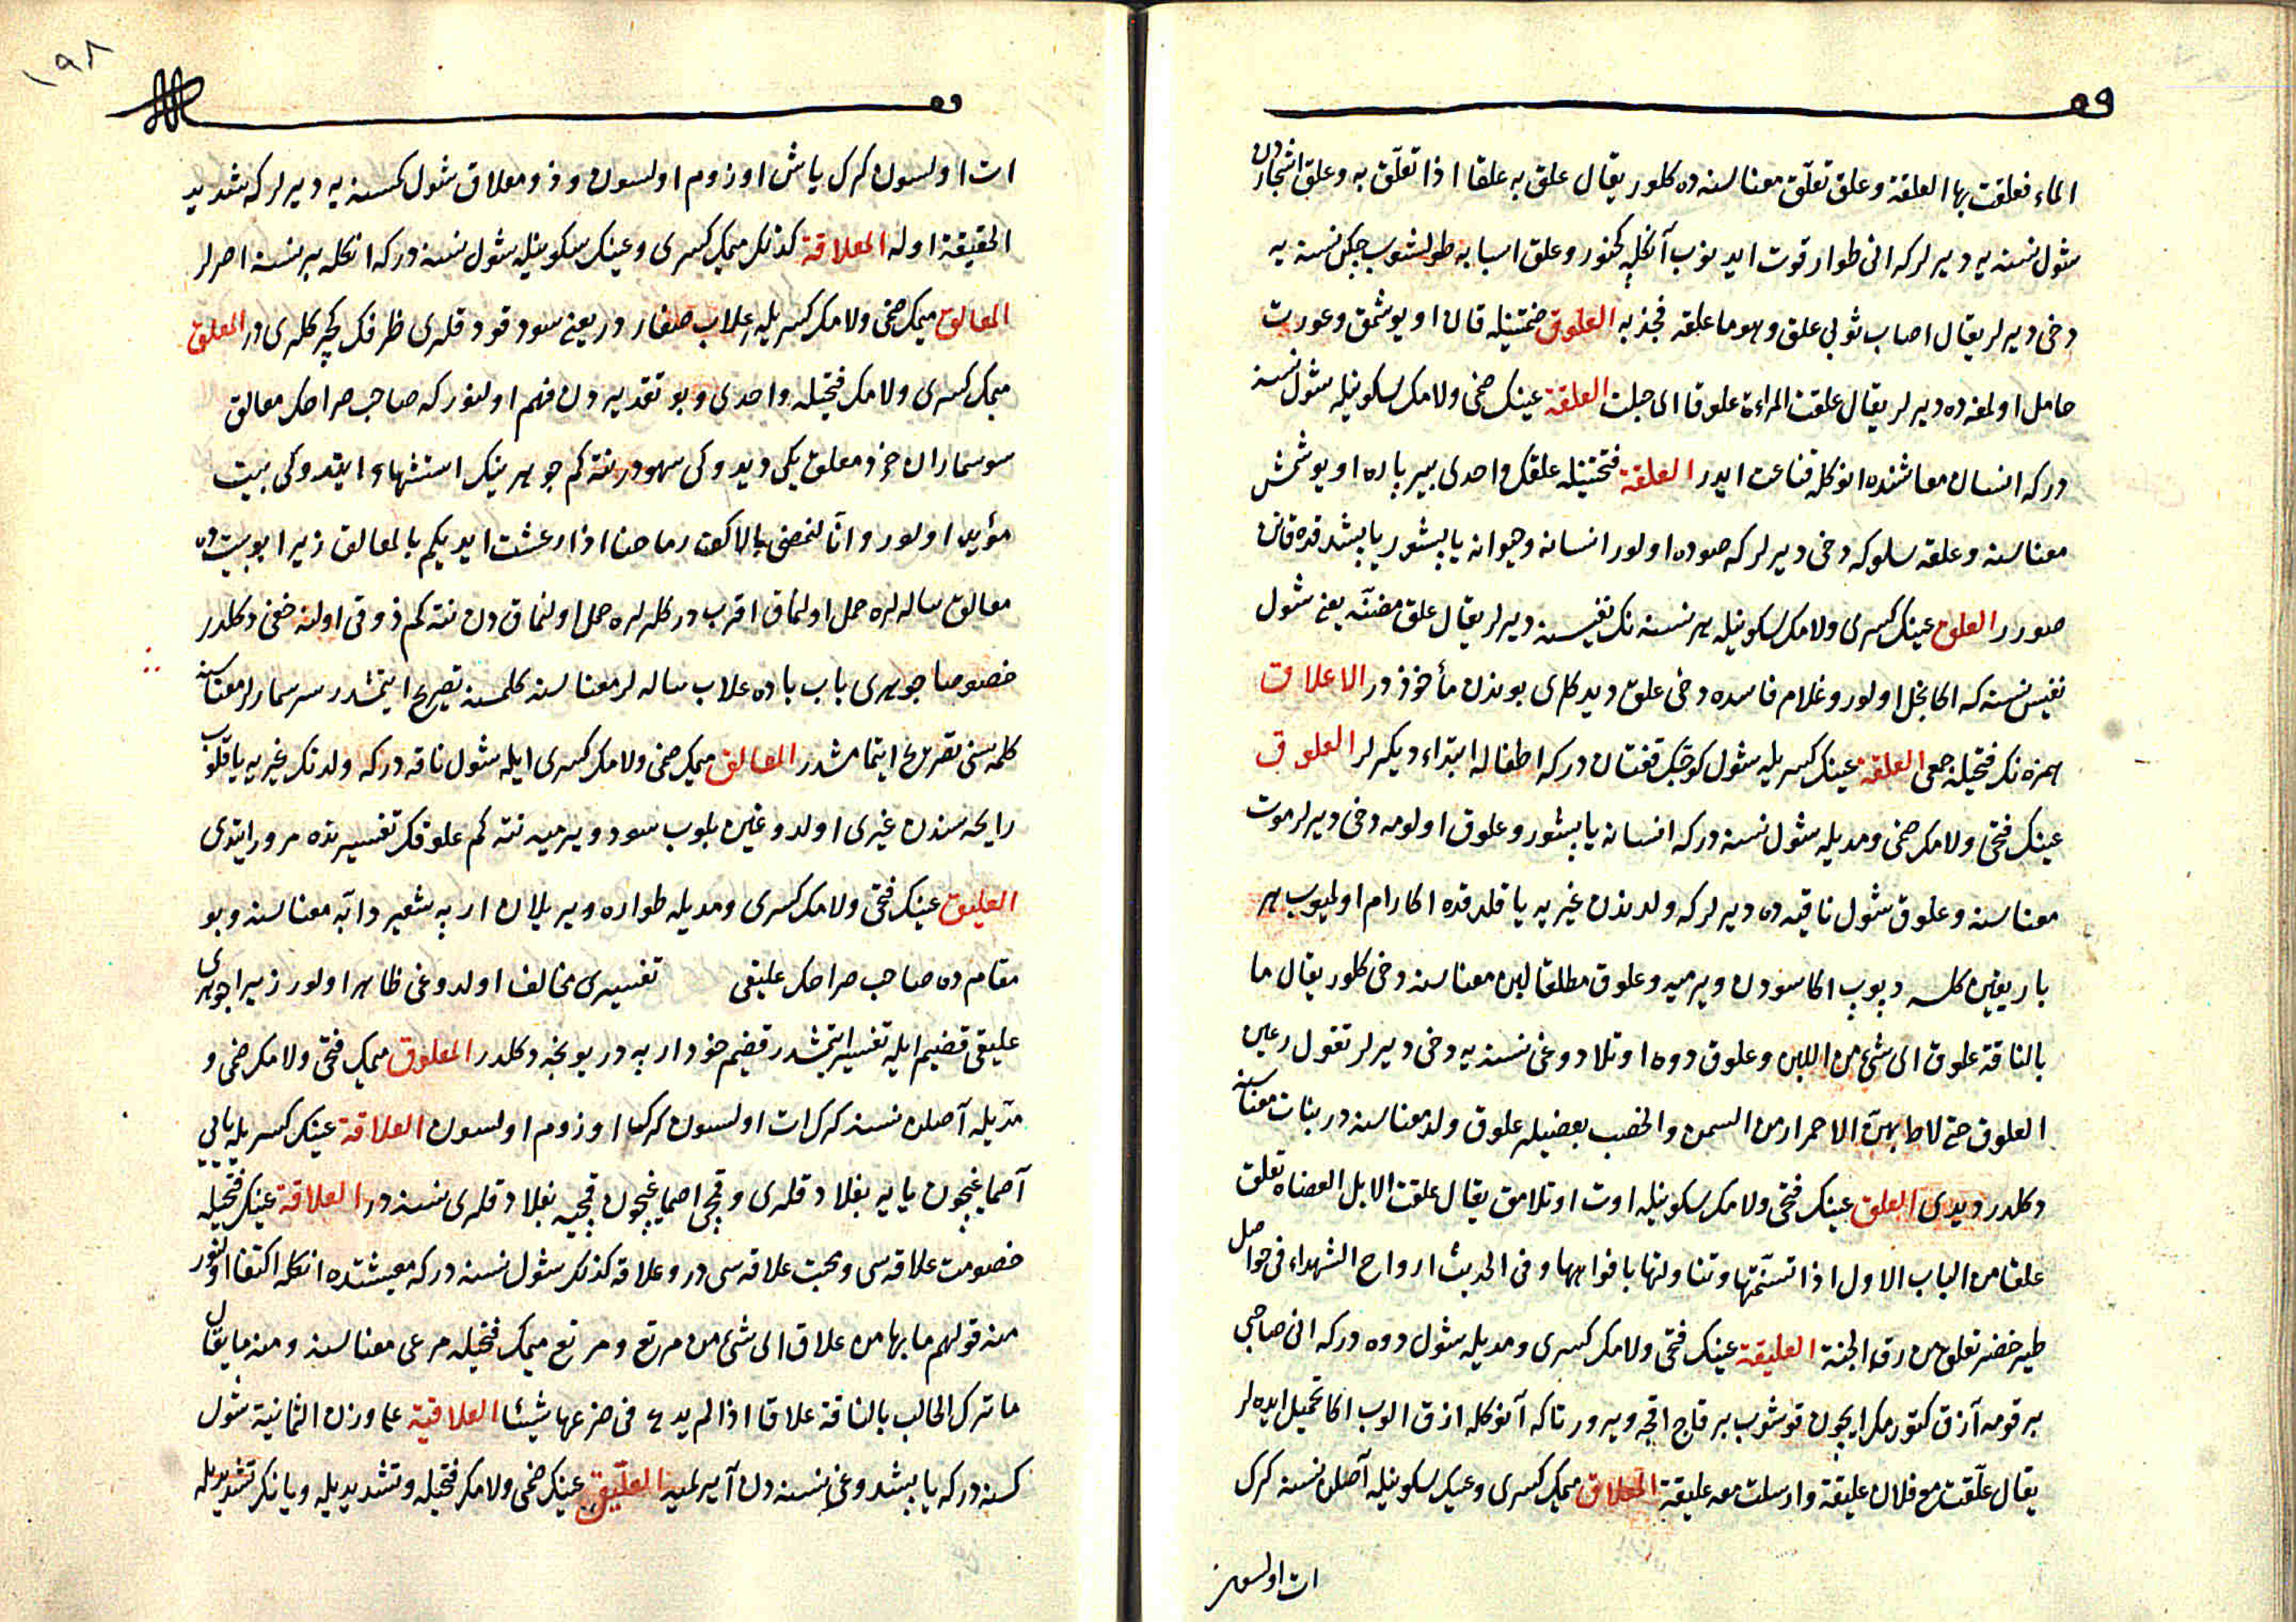 الماء فعلقت بها العلقة وعلق تعلّق معناسنه ده كلور يقال علق به علقا اذا تعلّق به وعلق اشجاردن
شول نسنه يه ديرلر كه انى طوار قوت ايدينوب آنكله كچنور وعلق اسبابه طولشوب چكن نسنه يه
دخى ديرلر يقال اصاب ثوبى علق وهو ما علقه فجذبه العلوق ضمّتينله قان اويوشمق وعورت
حامل اولمغه ده ديرلر يقال علقت المراءة علوقا اى حبلت العلقة عينك ضمى ولامك سكونيله شول نسنه
دركه انسان معاشنده انوكله قناعت ايدر العلقة فتحتينله علقك واحدى بير پاره اويوشمش
معناسنه وعلقه سلوكه دخى ديرلر كه صوده اولور انسانه وحيوانه ياپشور ياپشدقده قانن
صورر العلق عينك كسرى ولامك سكونيله هر نسنه نك نفيسنه ديرلر يقال علق مضنّه يعنى شول
نفيس نسنه كه اكا بخل اولور وغلام فاسده دخى علق ديدكلرى بوندن مأخوذدر الاعلاق
همزه نك فتحيله جمعى العلقة عينك كسريله شول كوچك قفتان دركه اطفاله ابتداء ديكرلر العلوق
عينك فتحى ولامك ضمى ومديله شول نسنه دركه انسانه ياپشور وعلوق اولومه دخى ديرلر موت
معناسنه وعلوق شول ناقيه ده ديرلر كه ولدندن غيريه ياقلدقده اكا رام اولميوب هر
بار يقين كلسه دپوب اكا سوددن ويرميه وعلوق مطلقا لبن معناسنه دخى كلور يقال ما
بالناقة علوق اى شئ من اللبن وعلوق دوه اوتلادوغى نسنه يه دخى ديرلر تقول رعين
العلوق حتى لاط بهنّ الاحمرار من السمن والخصب بعضيلر علوق ولد معناسنه در بنات معناسنه
دكلدر ديدى العلق عينك فتحى ولامك سكونيله اوت اوتلامق يقال علقت الابل العضاه تعلق
علقا من الباب الاول اذا تسنّمتها وتناولتها بافواهها وفى الحديث ارواح الشهداء فى حواصل
طير خضر تعلق من ورق الجنة العليقة عينك فتحى ولامك كسرى ومديله شول دوه دركه انى صاحبى
بر قومه آزق كتورمك ايچون قوشوب بر قاچ اقچه ويرور تاكه آنوكله ازق الوب اكا تحميل ايده لر
يقال علّقت مع فلان عليقة وارسلت معه عليقة المعلاق ميمك كسرى وعينك سكونيله آصلن نسنه كرك
ات اولسون
ات اولسون كرك ياش اوزوم اولسون وذو معلاق شول كمسنه يه ديرلر كه شديد
الحقيقة اوله المعلاقة كذلك ميمك كسرى وعينك سكونيله شول نسنه دركه انكله بر نسنه اصرلر
المعالق ميمك ضمى ولامك كسريله علاب صغاردر يعنى سود قودقلرى ظرفك كچركلرى در المعلق
ميمك كسرى ولامك فتحيله واحدى وبو تقديردن فهم اولنور كه صاحب صراحك معالق
سوسماران خرد معلق يكى ديدوكى سهودر نته كم جوهرينك استشهاد ايتدوكى بيت
مؤيد اولور وانّا لنمضى بالاكف رماحنا اذا ارعشت ايديكم بالمعالق زيرا بو بيت ده
معالق ساله لره حمل اولنماق اقربدر كلرلره حمل اولنماقدن نته كم ذوقى اولنه خفى دكلدر
خصوصا جوهرى باب باده علاب ساله لر معناسنه كلمسنه تصريح ايتمشدر سرسمارلر معناسنه
كلمه سنى تصريح ايتمامشدر المعالق ميمك ضمى ولامك كسرى ايله شول ناقه دركه ولدنك غيريه ياقلوب
رايحه سندن غيرى اولدوغين بلوب سود ويرميه نته كم علوقك تفسيرنده مرور ايتدى
العليق عينك فتحى ولامك كسرى ومديله طواره ويريلان ارپه شعير دابّه معناسنه وبو
مقام ده صاحب صراحك عليقى تفسيرى مخالف اولدوغى ظاهر اولور زيرا جوهرى
عليقى قضيم ايله تفسير ايتمشدر قضيم خود ارپه در يونجه دكلدر المعلوق ميمك فتحى ولامك ضمى و
مدّيله آصلن نسنه كرك ات اولسون كرك اوزوم اولسون العلاقة عينك كسريله يايى
آصماغيچون يايه بغلادقلرى وقمچى اصماغيچون قمچيه بغلادقلرى نسنه در العلاقة عينك فتحيله
خصومت علاقه سى ومحبت علاقه سى در وعلاقه كذلك شول نسنه دركه معيشتده انكله اكتفا اولنور
منه قولهم ما بها من علاق اى شئ من مرتع ومرتع ميمك فتحيله مرعى معناسنه ومنه ما يقال
ما ترك الحالب بالناقة علاقا اذا لم يدع فى ضرعها شيئا العلاقية على وزن الثمانية شول
كسنه دركه ياپشدوغى نسنه دن آيرلميه العلّيق عينك ضمى ولامك فتحيله وتشديديله ويانك تشديديله
١٩٨